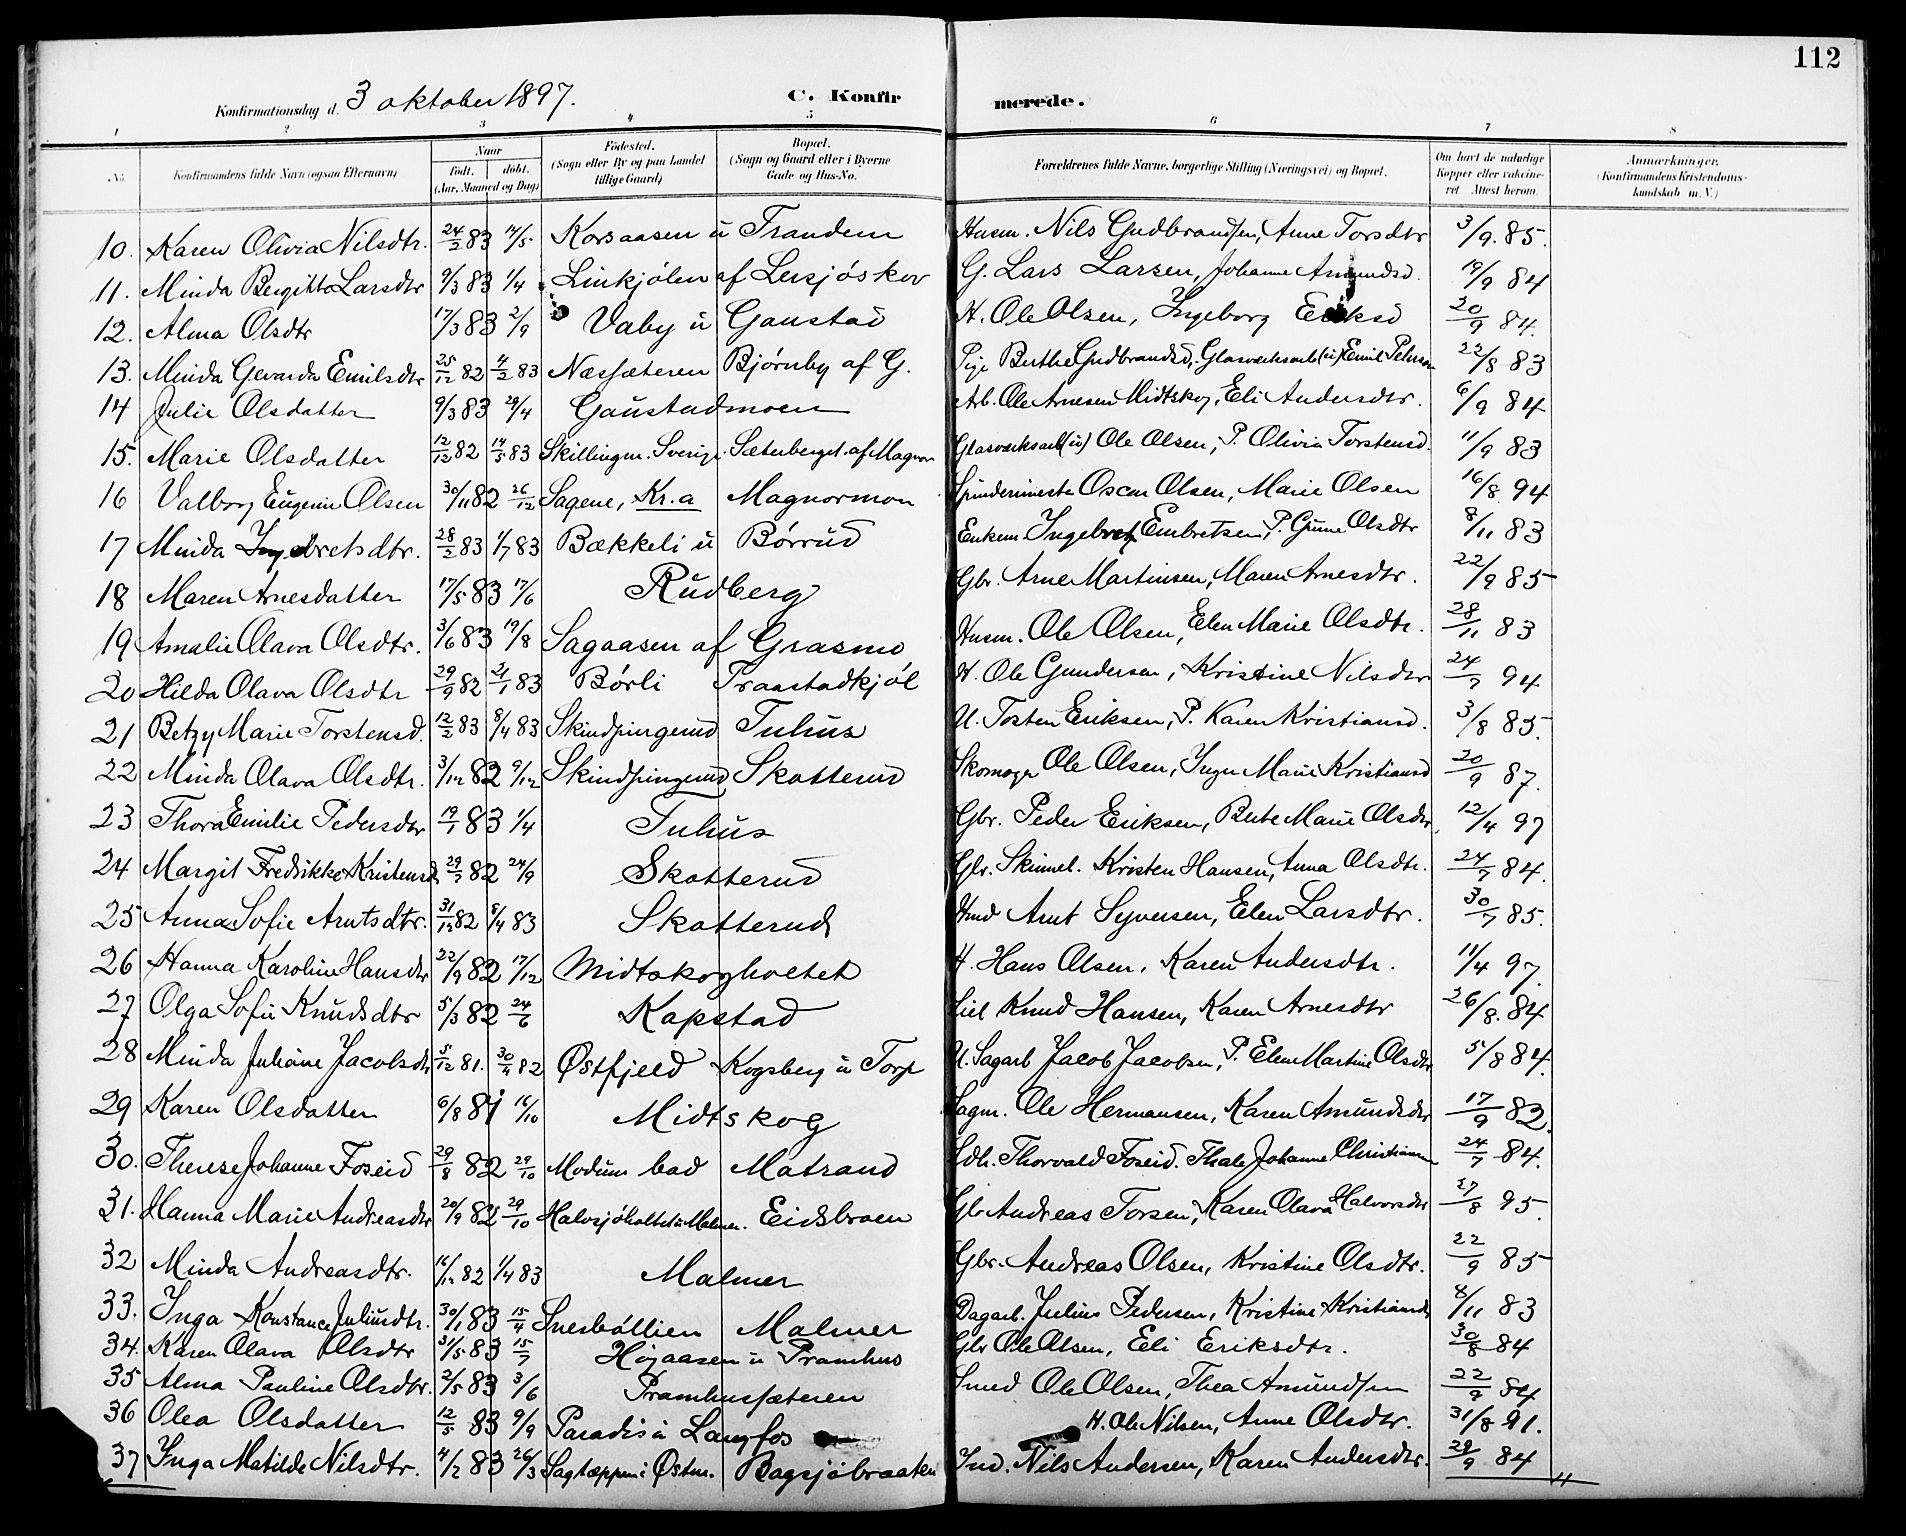 112
Konfirmationsdag d. 3 oktober 1897. C. Konfirmerede.
1 2 3 4 5 6 7 8
No. Konfirmandens fulde Navn (ogsaa Efternavn) Naar født. døbt. (Aar, Maaned og Dag) Fødested. (Sogn eller By og paa Landet tillige Gaard) Bopæl. (Sogn og Gaard eller i Byerne Gade og Hus-No. Forældrenes fulde Navne, borgerlige Stilling (Næringsvei) og Bopæl. Om havt de naturlige Kopper eller vakcineret Attest herom. Anmærkninger. (Konfirmandens Kristendomskundskab m. V.)
10. Karen Olivia Nilsdtr. 24/2 83 14/5 Korsaasen u Trandem Husm. Nils Gudbrandsen, Anne Torsdtr 3/9. 85.
11. Minda Bergitte Larsdtr 9/3 83 1/4 Linkjølen af Lersjøskov G. Lars Larsen, Johanne Amundsd. 19/9 84
12. Alma Olsdtr 17/3 83 2/9 Vaby u Gaustad H. Ole Olsen, Ingeborg Eriksd 20/9 84.
13. Minda Gevarda Emilsdtr 25/12 82 4/2 83 Næssæteren Bjørnby af G. Pige Berthe Gudbrandsd, Glasværksarb (u) Emil Peterson 22/8 83
14 Julie Olsdatter 9/3 83 29/4 Gaustadmoen Arb. Ole Arnesen Midtskog, Eli Andersdtr. 6/9 84
15. Marie Olsdatter 12/12 82 14/5 83 Skillingm. Sverige Sæterberget af Magnor Glasværksarb (u) Ole Olsen, P. Olivia Torstensd. 11/9 83
16 Valborg Eugenie Olsen 30/11 82 26/12 Sagene, Kr.a Magnormon Spinderimester Oscar Olsen, Marie Olsen 16/8. 94
17 Minda Ingebretsdtr. 28/2 83 1/7 83 Bækkeli u Børrud Enkem. Ingebret Embretsen, P. Gunne Olsdtr 8/11 83
18 Maren Arnesdatter 17/5 83 17/6 Rudberg Gbr. Arne Martinsen, Maren Arnesdtr. 22/9 85
19 Amalie Olava Olsdtr. 3/6 83 19/8 Sagaasen af Grasmo Husm. Ole Olsen, Elen Marie Olsdtr. 28/11 83
20 Hilda Olava Olsdtr 29/9 82 21/1 83 Børli Praastadkjøl H. Ole Gundersen, Kristine Nilsdtr 24/7 94
21 Betzy Marie Torstensd. 12/2 83 8/4 83 Skindpungerud Tuhus U. Tosten Eriksen, P. Karen Kristiansd. 3/8 85.
22 Minda Olava Olsdtr. 3/12 82 9/12 Skindpungerud, Skotterud Skomager Ole Olsen, Inger Marie Kristiansd 20/9 87.
23 Thora Emilie Pedersdtr 19/1 83 1/4 Tuhus Gbr. Peder Eriksen, Berte Marie Olsdtr. 12/4 97
24 Margit Fredrikke Kristensd 29/7 82 24/9 Skotterud Gbr. Skinnel. Kristen Hansen, Anna Olsdtr. 24/7 84.
25 Anna Sofie Arntsdtr. 31/12 82 8/4 83 Skotterud Smd Arnt Syversen, Elen Larsdtr. 30/7 85.
26 Hanna Karoline Hansdtr 22/9 82 17/12 Midtskogholtet H. Hans Olsen, Karen Andersdtr. 11/4 97
27 Olga Sofie Knudsdtr 5/3 82 24/6 Kapstad Knud Hansen, Karen Arnesdtr 26/8. 84
28 Minda Juliane Jacobsdtr 5/12 81. 30/4 82 Østfjeld Kogsberg u Torp U. Sagarb Jacob Jacobsen, P. Elen Martine Olsdtr 5/8 84.
29 Karen Olsdatter 6/8 81 16/10 Midtskog Sagm. Ole Hermansen, Karen Amundsdtr 17/9 82.
30. Therese Johanne Foseid 29/8 82 29/10 Modum bad Matrand Ldh. Thorvald Foseid. Thale Johanne Christiansen 24/7 84.
31. Hanna Marie Andreasdtr 20/9 82 29/10 Halvsjøholtet u Malmer. Eidsbraen Gbr Andreas Torsen, Karen Olava Halvorsdtr 27/8 95.
32 Minda Andreasdtr. 16/12 82 1/4 83 Malmer Gbr. Andreas Olsen, Kristine Olsdtr. 22/9 85
33. Inga Konstance Juliusdtr. 30/1 83 15/4 Snesbøllien Malmer Dagarb. Julius Pedersen, Kristine Kristiansdtr 8/11 83
34. Karen Olava Olsdtr 31/5 83 15/7 Høgaasen u Pramhus Gbr Ole Olsen, Eli Eriksdtr. 30/8 84
35 Alma Pauline Olsdtr. 2/5 83 3/6 Pramhussæteren Smed Ole Olsen, Thea Amundsen 22/9 84
36 Olea Olsdatter 12/5 83 9/9 Paradis u Langfos H. Ole Nilsen, Anne Olsdtr. 31/8 91.
37 Inga Matilde Nilsdtr. 4/2 83 26/3 Sagtæppen i Østm. Bagsjøbraaten Ind. Nils Andersen, Karen Andersdtr. 29/9 84